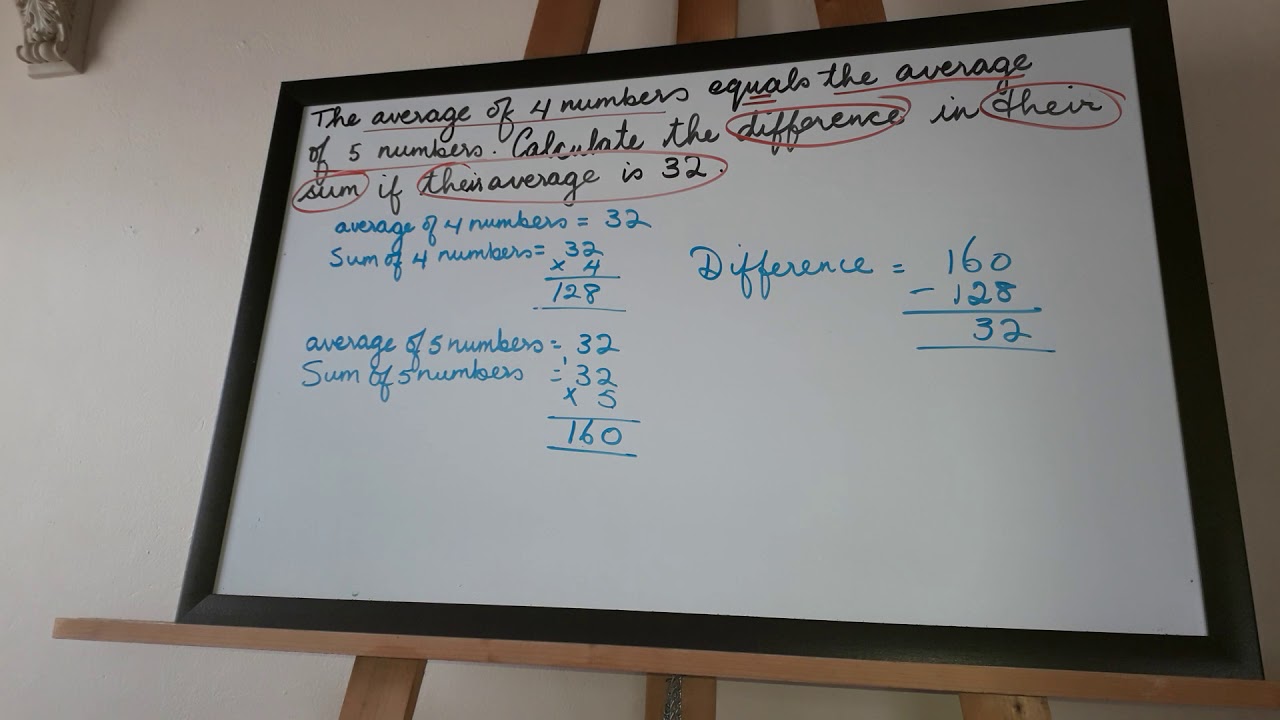 The average of 4 numbers equals the average
of 5 numbers. Calculate the difference in their
sum if their average is 32.
average of 4 numbers = 32
Sum of 4 numbers = 32
x 4
128
average of 5 numbers = 32
Sum of 5 numbers = 32
x 5
160
Difference = 160
- 128
32